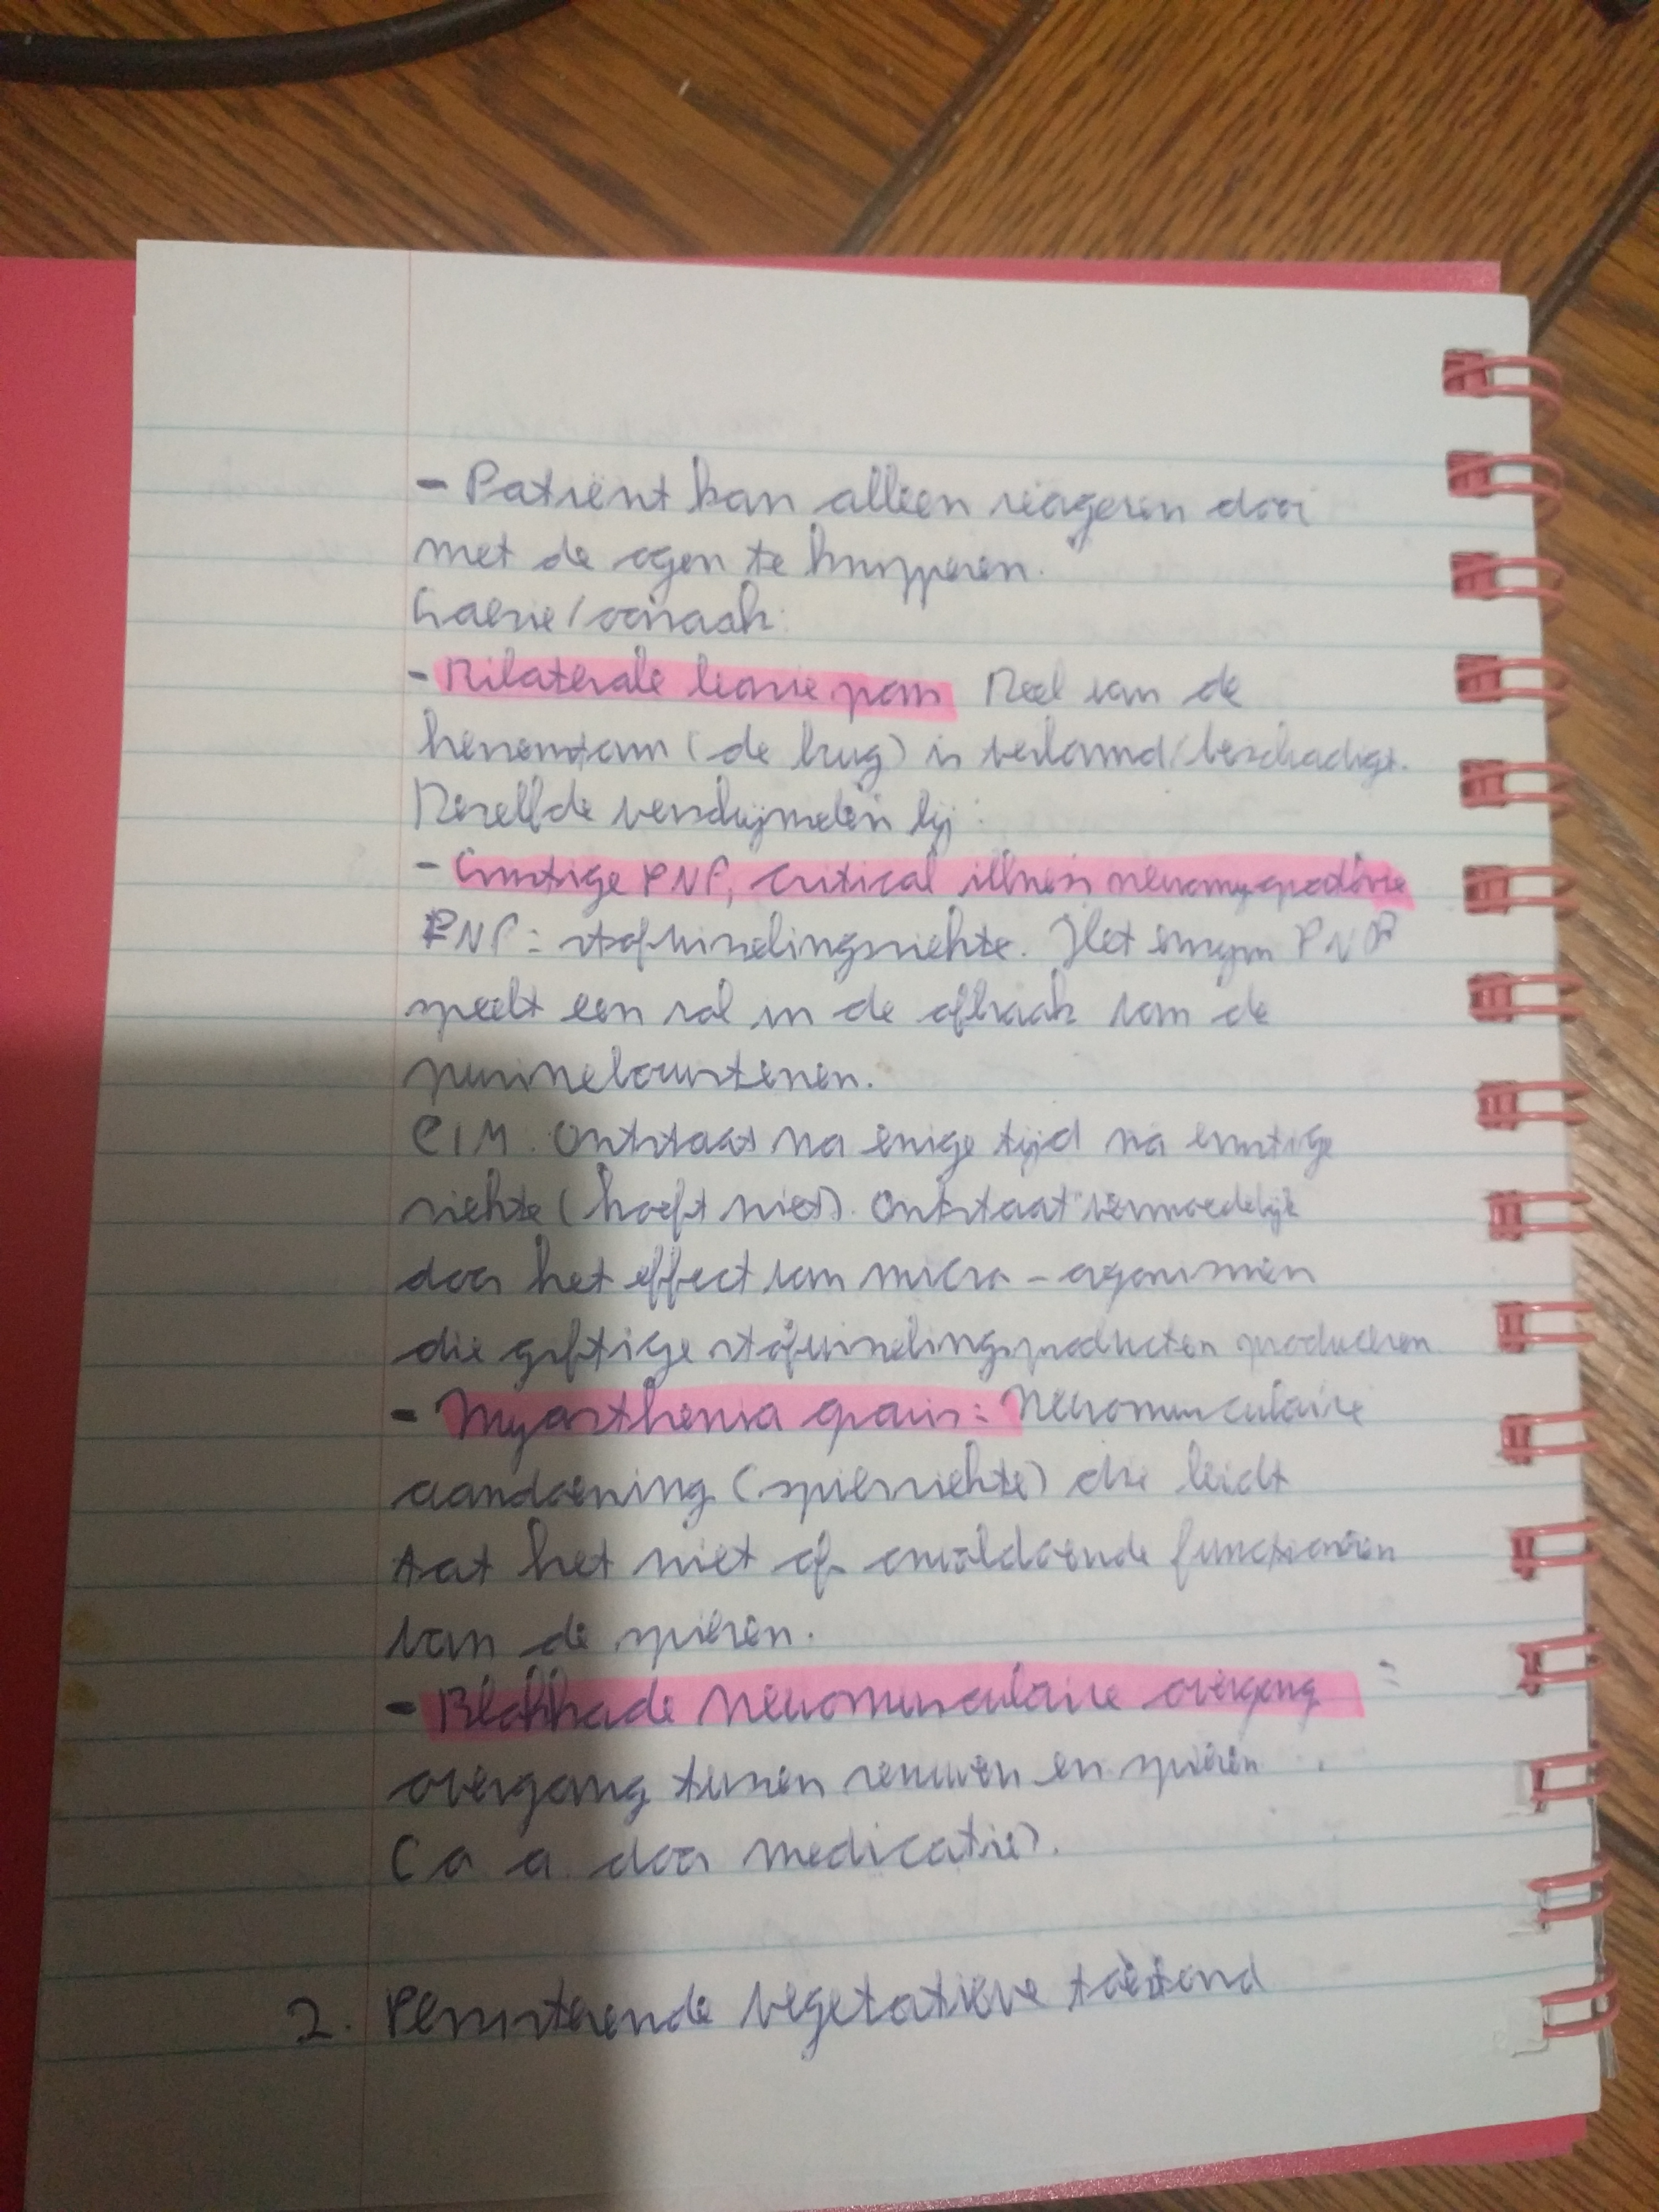 - Patiënt kan alleen reageren door
met de ogen te knipperen.
Laesie/oorzaak:
- Bilaterale laesie pons Deel van de
hersenstam (de brug) is verlamd/beschadigt.
Dezelfde verschijnselen bij:
- Ernstige PNP, critical illness neuromyopathie
PNP: stofwisselingsziekte. Het enzym PNP
speelt een rol in de afbraak van de
purinebouwstenen.
CIM. Ontstaat na enige tijd na ernstige
ziekte (hoeft niet). Ontstaat vermoedelijk
door het effect van micro-organismen
die giftige stofwisselingsproducten produceren
- Myasthenia gravis: Neuromusculaire
aandoening (spierziekte) die leidt
tot het niet of onvoldoende functioneren
van de spieren.
- Blokkade neuromusculaire overgang =
overgang tussen zenuwen en spieren.
(o a door medicatie).
2. Persisterende vegetatieve toestand